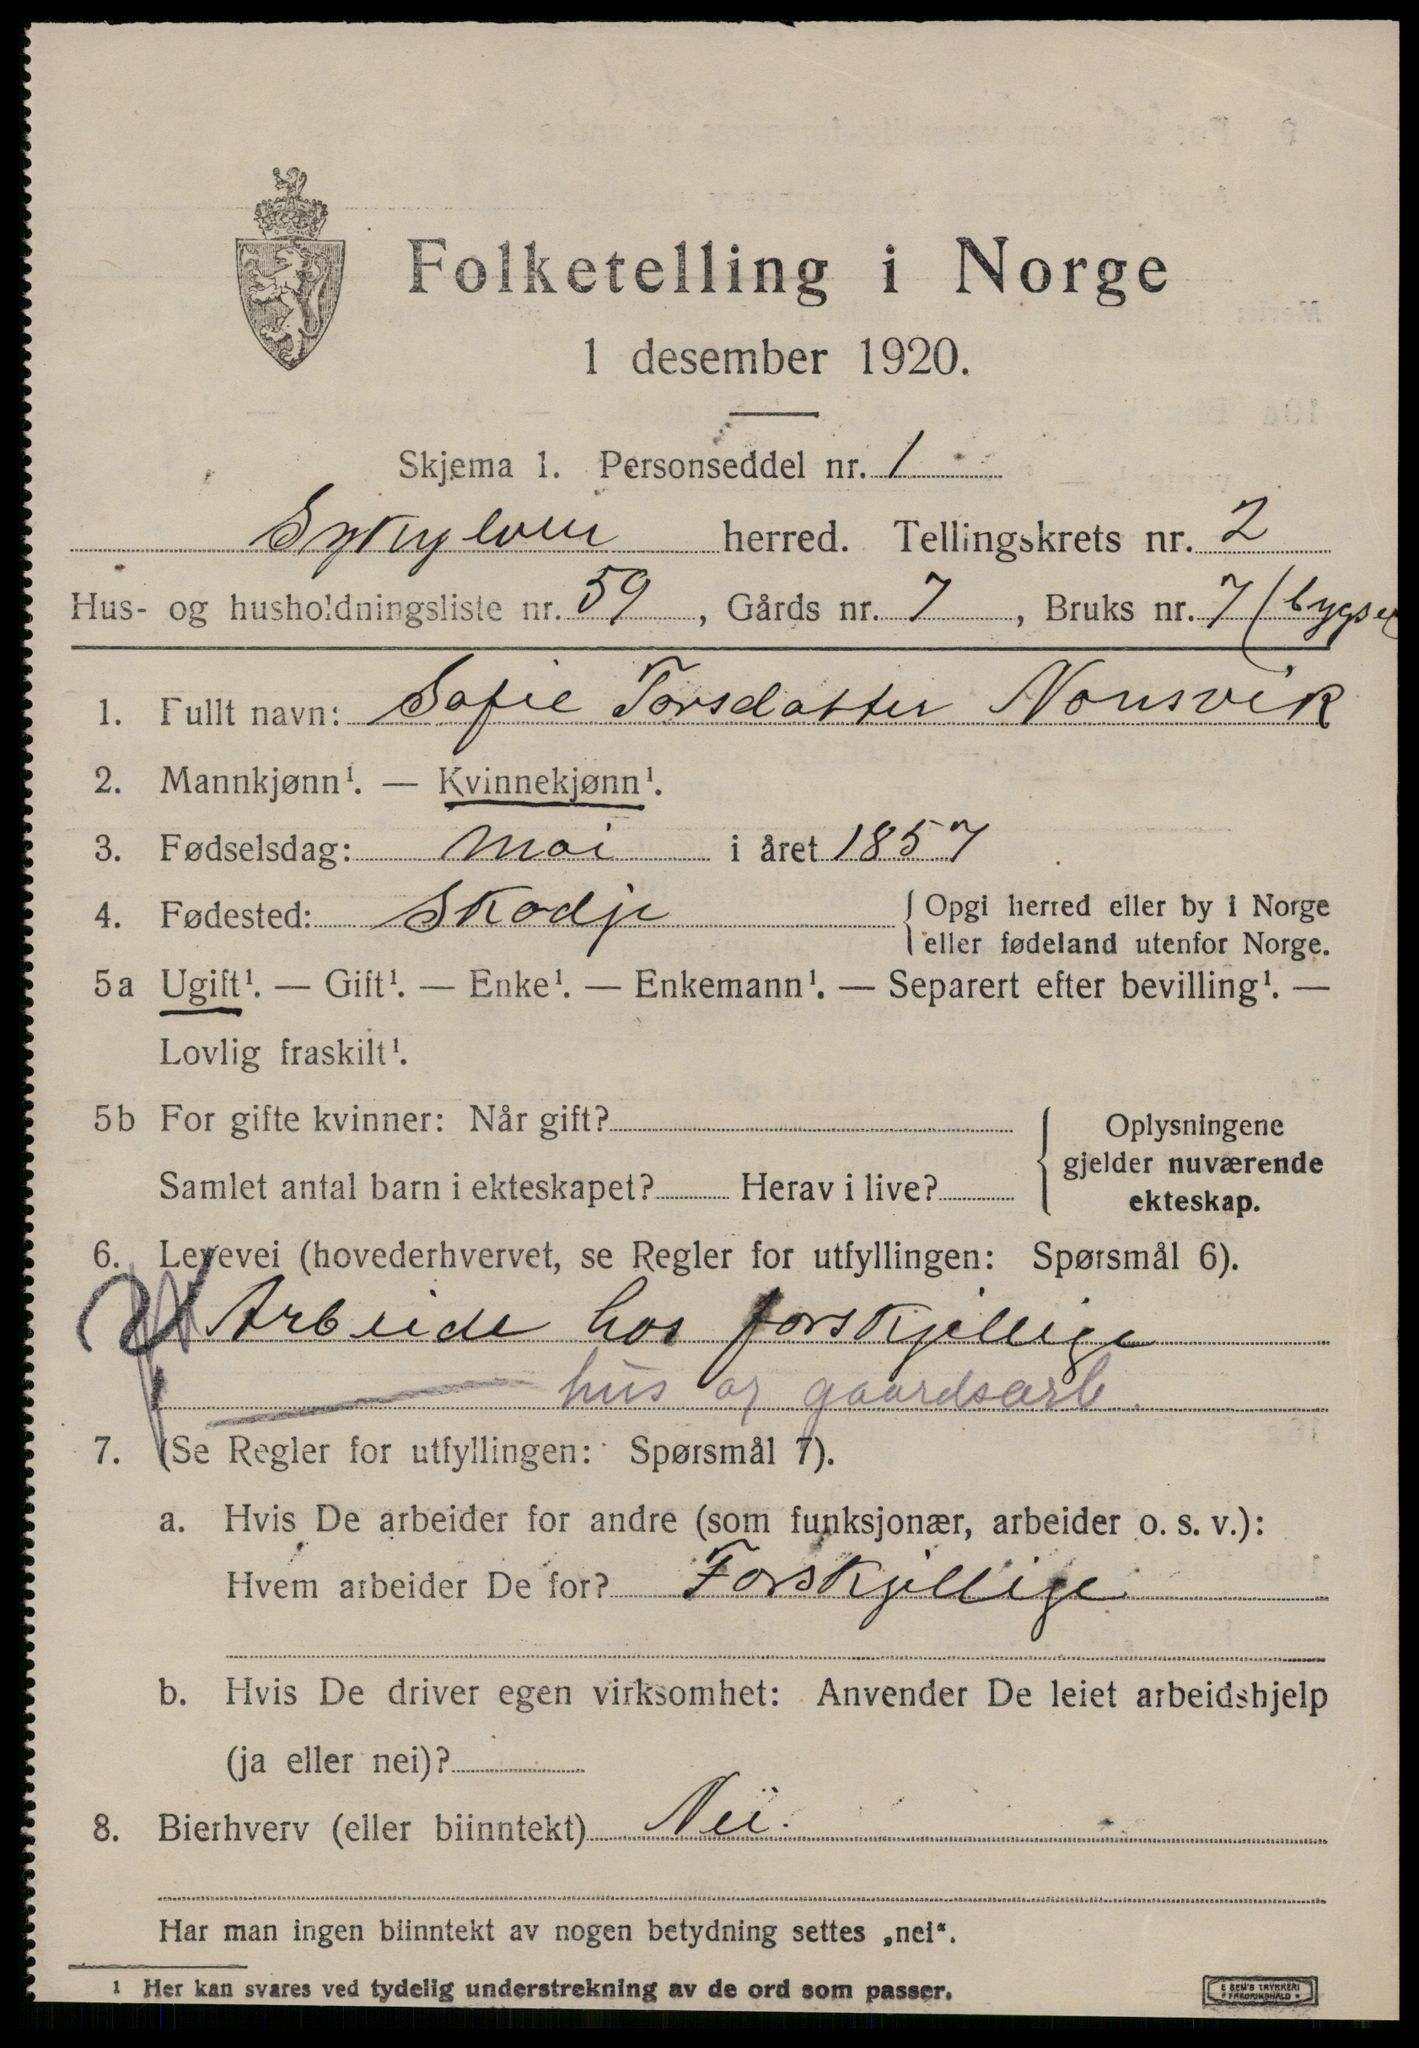 Folketelling i Norge
1 desember 1920.
Skjema 1. Personseddel nr. 1
Sykylven herred. Tellingskrets nr. 2
Hus- og husholdningsliste nr. 59, Gårds nr. 7, Bruks nr. 7 (bygsel
1. Fullt navn: Sofie Torsdatter Nonsvik
2. Mannkjønn¹. — Kvinnekjønn¹.
3. Fødselsdag: mai i året 1857
4. Fødested: Skodje { Opgi herred eller by i Norge
eller fødeland utenfor Norge.
5a Ugift¹. — Gift¹. — Enke¹. — Enkemann¹. — Separert efter bevilling¹. —
Lovlig fraskilt¹.
5b For gifte kvinner: Når gift?
Samlet antal barn i ekteskapet? Herav i live?
{ Oplysningene
gjelder nuværende
ekteskap.
6. Levevei (hovederhvervet, se Regler for utfyllingen: Spørsmål 6).
Arbeide hos forskjellige
hus og gaardsarb.
7. (Se Regler for utfyllingen: Spørsmål 7).
a. Hvis De arbeider for andre (som funksjonær, arbeider o. s. v.):
Hvem arbeider De for? Forskjellige
b. Hvis De driver egen virksomhet: Anvender De leiet arbeidshjelp
(ja eller nei)?
8. Bierhverv (eller biinntekt) Nei.
Har man ingen biinntekt av nogen betydning settes „nei“.
¹ Her kan svares ved tydelig understrekning av de ord som passer.
E SEM'S TRYKKERI
FREDRIKSHALD